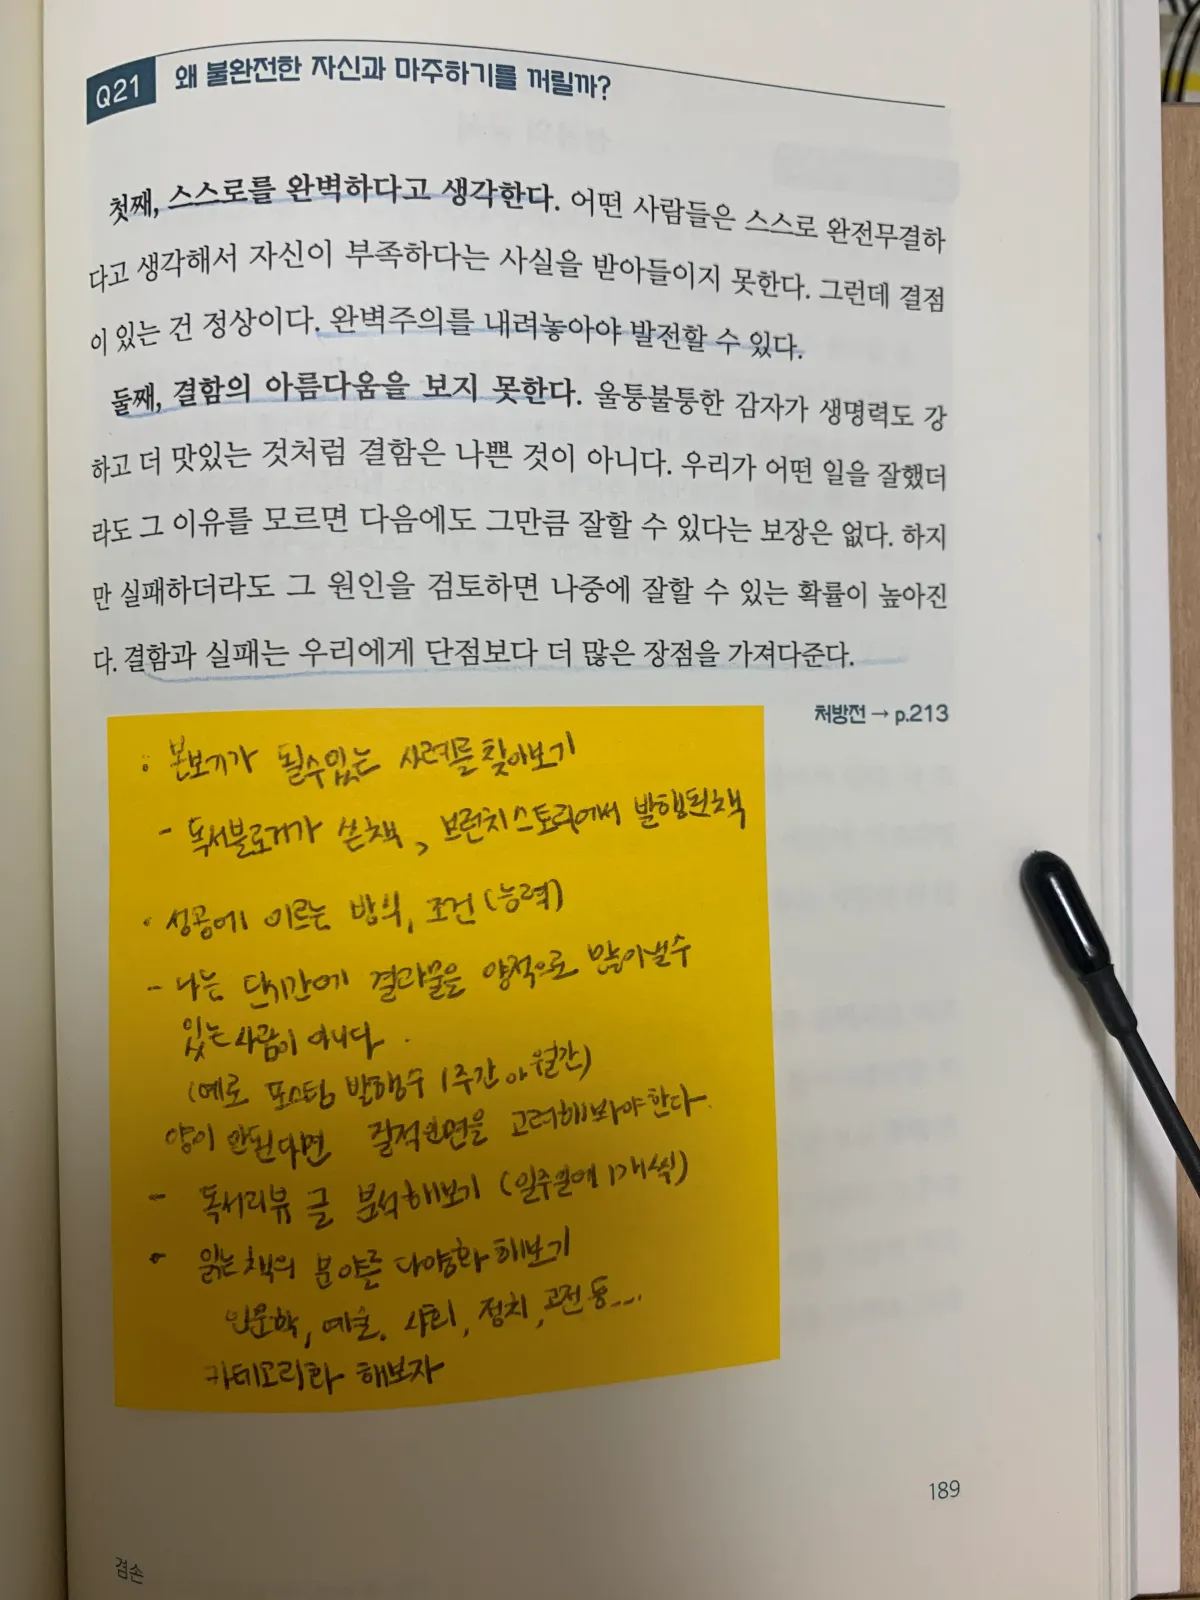 Q21 왜 불완전한 자신과 마주하기를 꺼릴까?
첫째, 스스로를 완벽하다고 생각한다. 어떤 사람들은 스스로 완전무결하
다고 생각해서 자신이 부족하다는 사실을 받아들이지 못한다. 그런데 결점
이 있는 건 정상이다. 완벽주의를 내려놓아야 발전할 수 있다.
둘째, 결함의 아름다움을 보지 못한다. 울퉁불퉁한 감자가 생명력도 강
하고 더 맛있는 것처럼 결함은 나쁜 것이 아니다. 우리가 어떤 일을 잘했더
라도 그 이유를 모르면 다음에도 그만큼 잘할 수 있다는 보장은 없다. 하지
만 실패하더라도 그 원인을 검토하면 나중에 잘할 수 있는 확률이 높아진
다. 결함과 실패는 우리에게 단점보다 더 많은 장점을 가져다준다.
처방전 → p.213
: 본보기가 될수있는 사례를 찾아보기
- 독서블로거가 쓴책, 브런치스토리에서 발행된책
· 성공에 이르는 방식, 조건(능력)
- 나는 단시간에 결과물을 양적으로 뽑아낼수
있는 사람이 아니다.
(예로 포스팅 발행수 1주간 월간)
양이 안된다면 질적인면을 고려해봐야한다.
- 독서리뷰 글 분석해보기 (일주일에 1개씩)
· 읽는 책의 분야를 다양화 해보기
인문학, 예술, 사회, 정치, 고전 등...
카테고리화 해보자
189
겸손